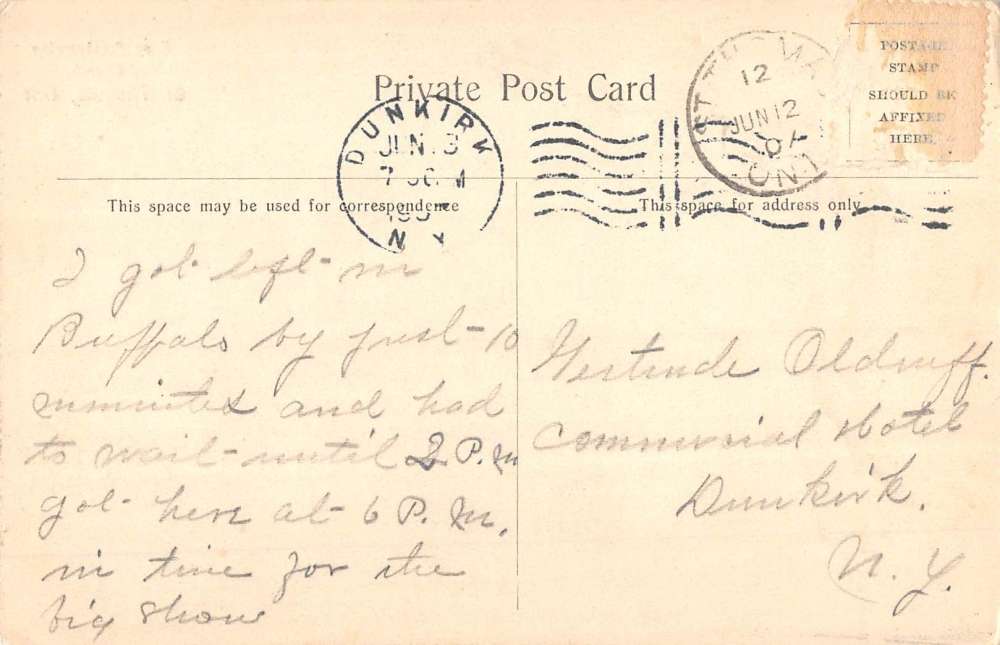 Private Post Card
POSTAGE
STAMP
SHOULD BE
AFFIXED
HERE.
12
JUN 12
07
ONT
DUNKIRK
JUN 13
7 M
190
N Y
This space may be used for correspondence
This space for address only
I got left in
Buffalo by just 10
minutes and had
to wait until 2 P.m
got here at 6 P. M.
in time for the
big show
Gertrude Oldruff.
Commercial Hotel
Dunkirk.
N. Y.